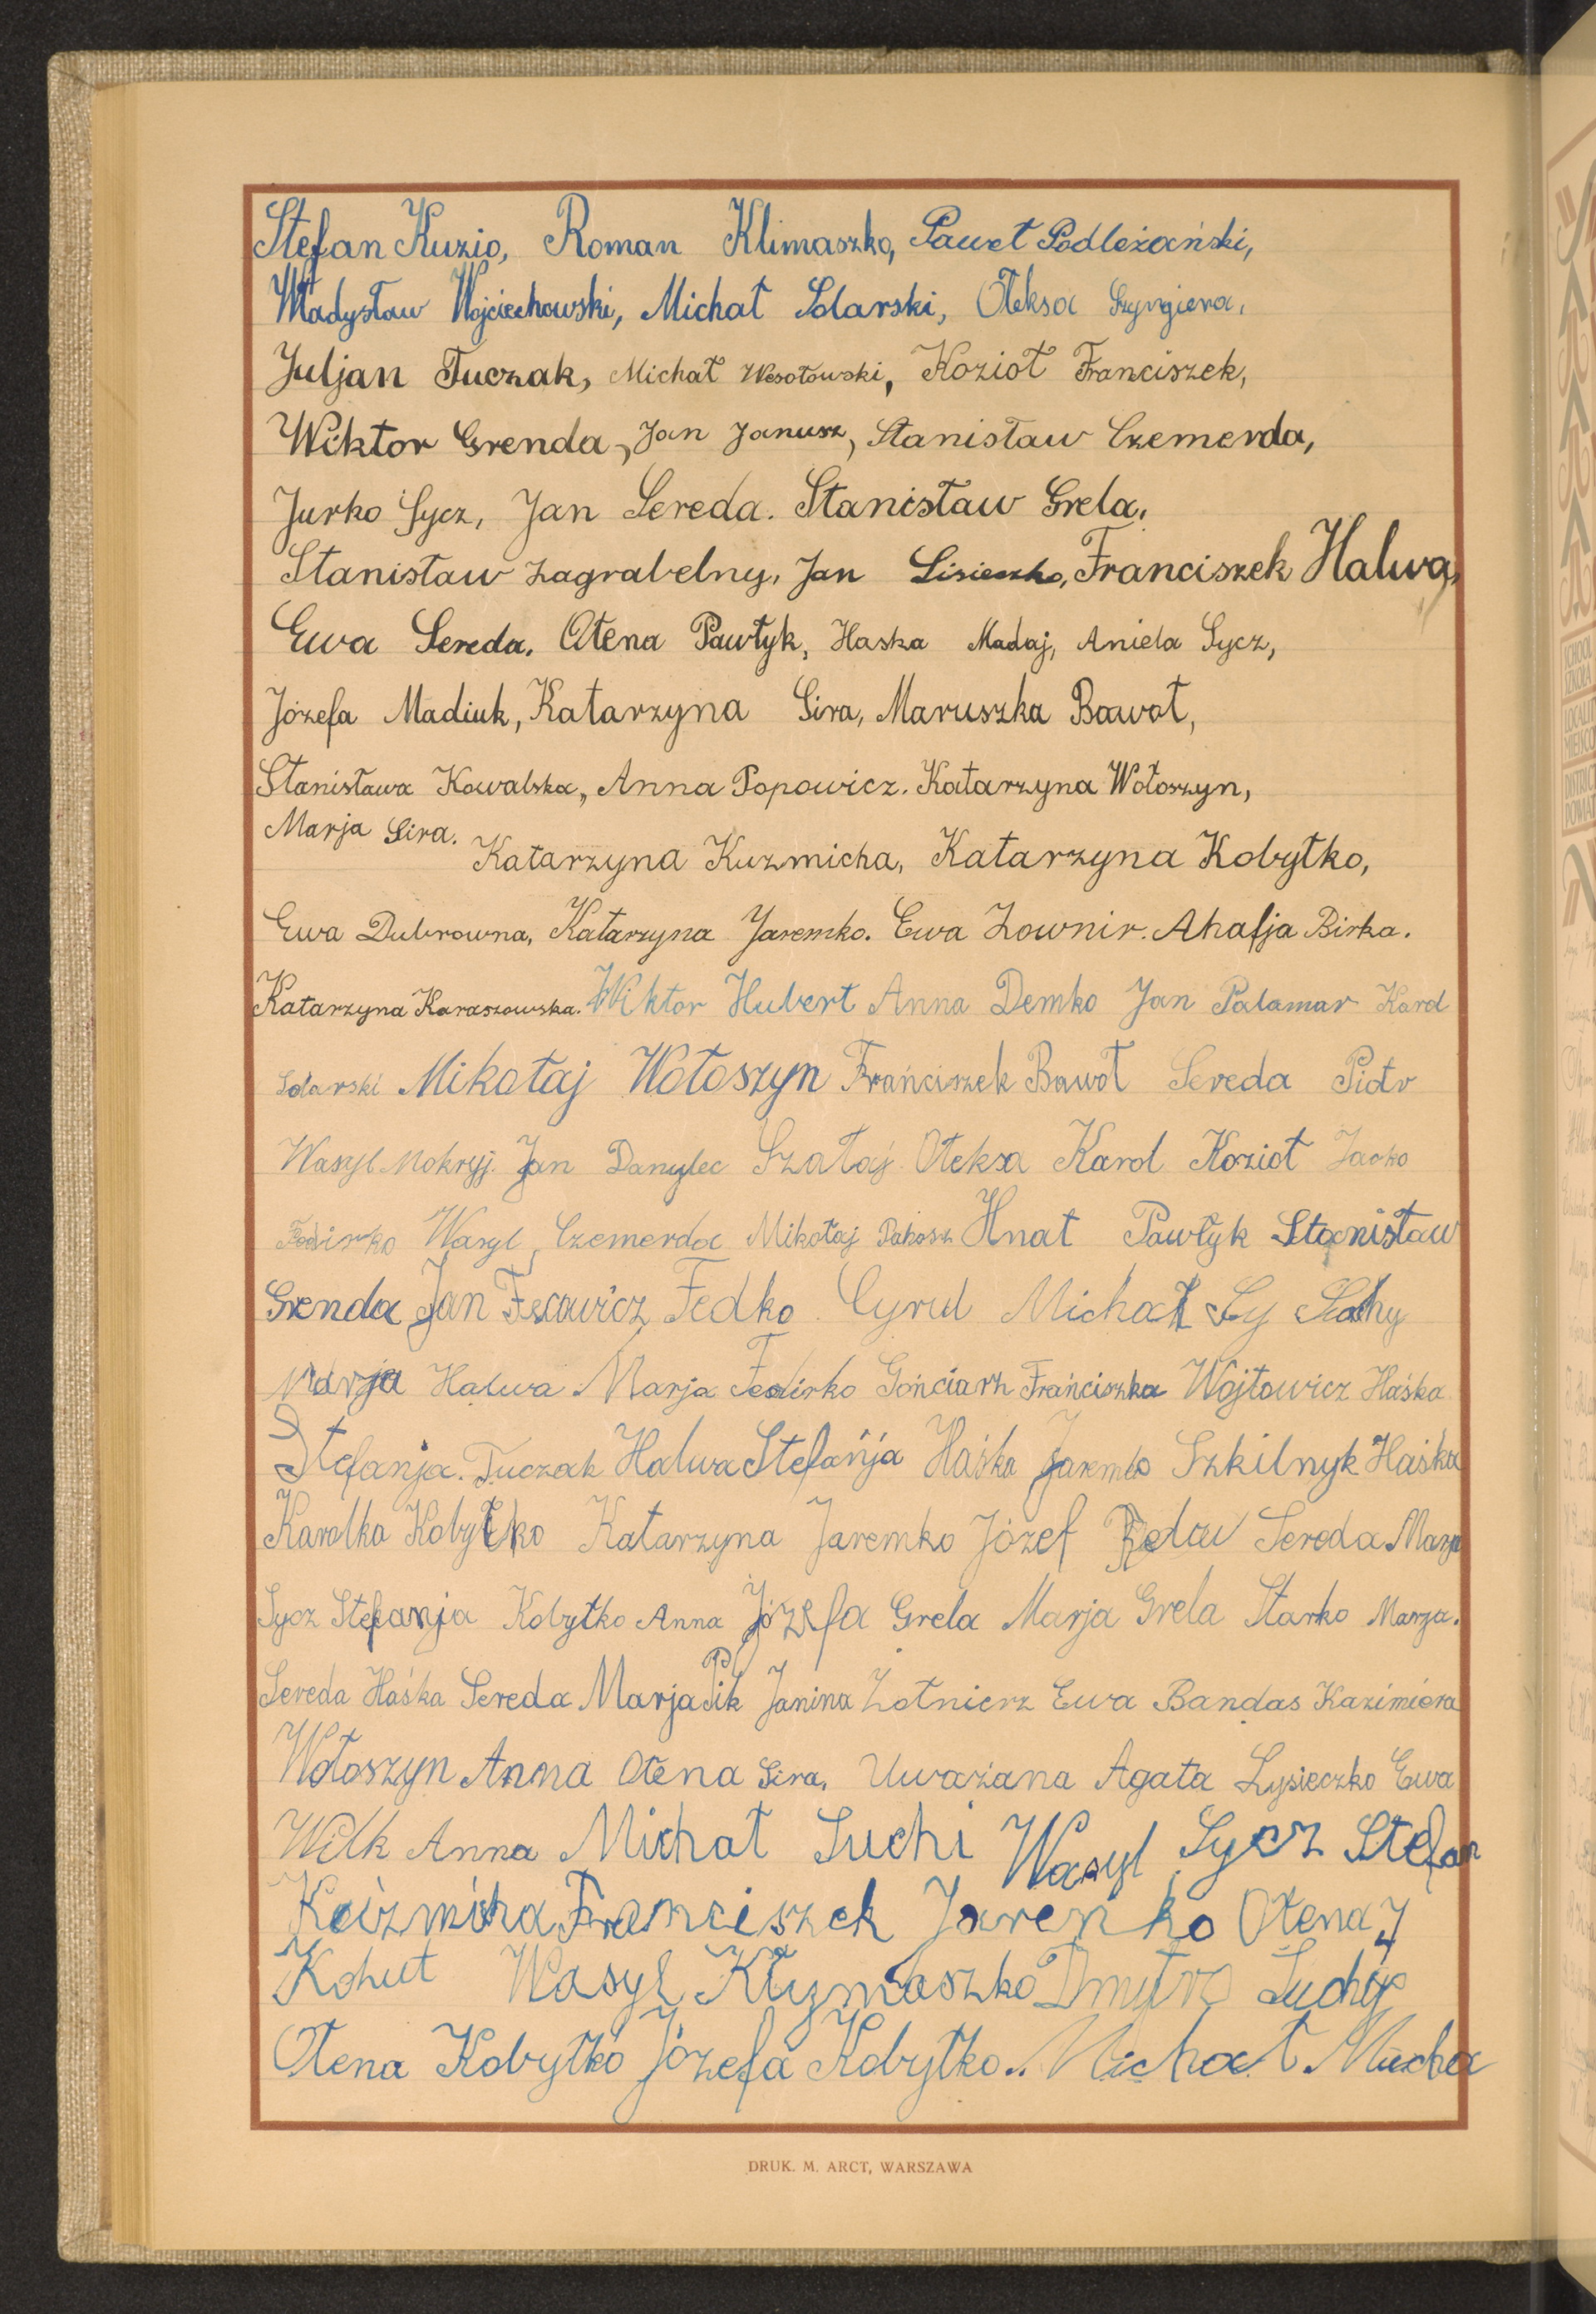 Stefan Kuzio, Roman Klimaszko, Paweł Podleżański,
Władysław Wojciechowski, Michał Solarski, Ołeksa Szyngiera,
Juljan Tuczak, Michał Wesołowski, Kozioł Franciszek,
Wiktor Grenda, Jan Janusz, Stanisław Czemerda,
Jurko Sycz, Jan Sereda. Stanisław Grela,
Stanisław Zagrabelny, Jan Lisieczko, Franciszek Halwa,
Ewa Sereda, Ołena Pawłyk, Haska Madaj, Aniela Sycz,
Józefa Madiuk, Katarzyna Sira, Maruszka Bawoł,
Stanisława Kowalska, Anna Popowicz. Katarzyna Wołoszyn,
Marja Sira.
Katarzyna Kuzmicha, Katarzyna Kobyłko,
Ewa Dubrowna, Katarzyna Jaremko. Ewa Żownir. Ahafja Birka.
Katarzyna Karaszowska. Wiktor Hubert Anna Demko Jan Palamar Karol
Solarski Mikołaj Wołoszyn Frańciszek Bawoł Sereda Piotr
Wasyl Mokryj. Jan Danylec Szałaj Ołeksa Karol Kozioł Jacko
Fedirko Wasyl Czemerda Mikołaj Pakosz Hnat Pawłyk Stanisław
Grenda Jan Fecowicz Fedko Cyrul Michał Sy
Marja Halwa Marja Fedirko Gońciarz Frańciszka Wójtowicz Haśka
Stefanja. Tuczak Halwa Stefańja Haśka Jaremko Szkilnyk Haśka
Karolka Kobyłko Katarzyna Jaremko Józef Sereda Marja
Sycz Stefanja Kobyłko Anna Józefa Grela Marja Grela Starko Marja.
Sereda Haśka Sereda Marja Pik Janina Żołnierz Ewa Bandas Kazimiera
Wołoszyn Anna Ołena Sira, Uważana Agata Łysieczko Ewa
Wilk Anna Michał Suchi Wasyl Sycz Stefan
Kuźmicha Franciszek Jareńko Ołena
Kohut Wasyl Kłymaszko Dmytro Suchyj
Ołena Kobyłko Józefa Kobyłko.. Michał. Mucha
DRUK. M. ARCT, WARSZAWA